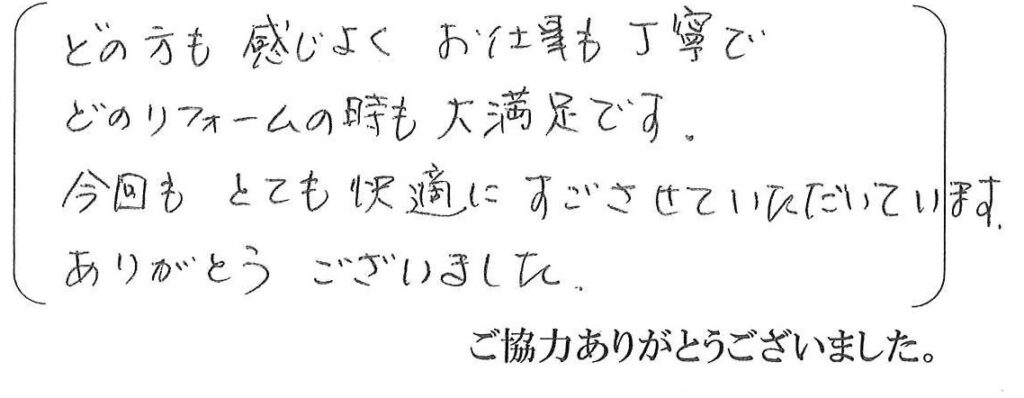 どの方も 感じよく お仕事も丁寧で
どのリフォームの時も大満足です.
今回も とても快適に すごさせていただいています.
ありがとう ございました.
ご協力ありがとうございました。